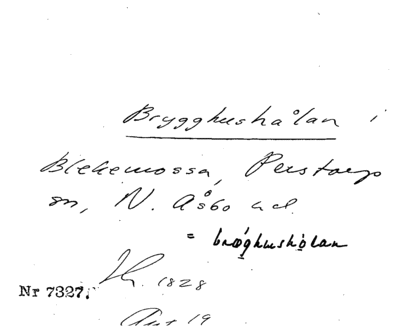 Brygghushålan i
Blekemossa, Perstorp
sn, N. Åsbo hd.
= bróghushålan
1828
Nr 7327.